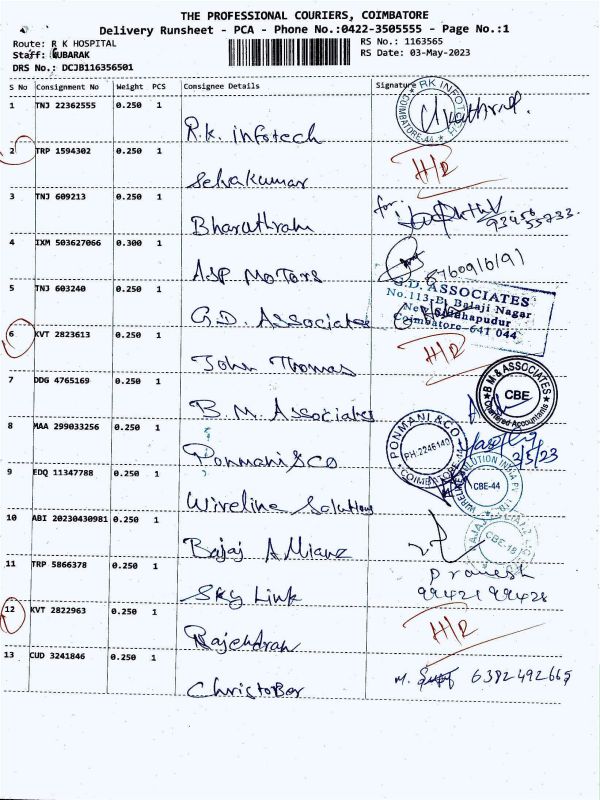 THE PROFESSIONAL COURIERS, COIMBATORE
Delivery Runsheet - PCA - Phone No.:0422-3505555 - Page No.:1
Route: R K HOSPITAL
RS No.: 1163565
Staff: GUBARAK
RS Date: 03-May-2023
DRS No.: DCJB116356501
S No Consignment No Weight PCS Consignee Details Signature
1 TNJ 22362555 0.250 1 R.K. infotech
RK INFOTECH COIMBATORE-44
2 TRP 1594302 0.250 1 Selvakumar H/R
3 TNJ 609213 0.250 1 Bharathram for 93456 55733
4 IXM 503627066 0.300 1 ASP MOTORS 8760916191
5 TNJ 603240 0.250 1 G.D. Associates
G.D. ASSOCIATES
No.113-E, Balaji Nagar
New Siddhapudur
Coimbatore-641 044
6 KVT 2823613 0.250 1 John Thomas H/R
7 DDG 4765169 0.250 1 B.M. Associates
B M & ASSOCIATES CBE Chartered Accountants
8 MAA 299033256 0.250 1 Ponmani & CO
PONMANI & CO PH:2246140 COIMBATORE-44
3/5/23
9 EDQ 11347788 0.250 1 Wireline Solutions
WIRELINE SOLUTION INDIA CBE-44
10 ABI 20230430981 0.250 1 Bajaj Allianz
BAJAJ ALLIANZ CBE-18
11 TRP 5866378 0.250 1 Sky Link Pranesh
99421 99428
12 KVT 2822963 0.250 1 Rajendran H/R
13 CUD 3241846 0.250 1 Christober M. 6382492665